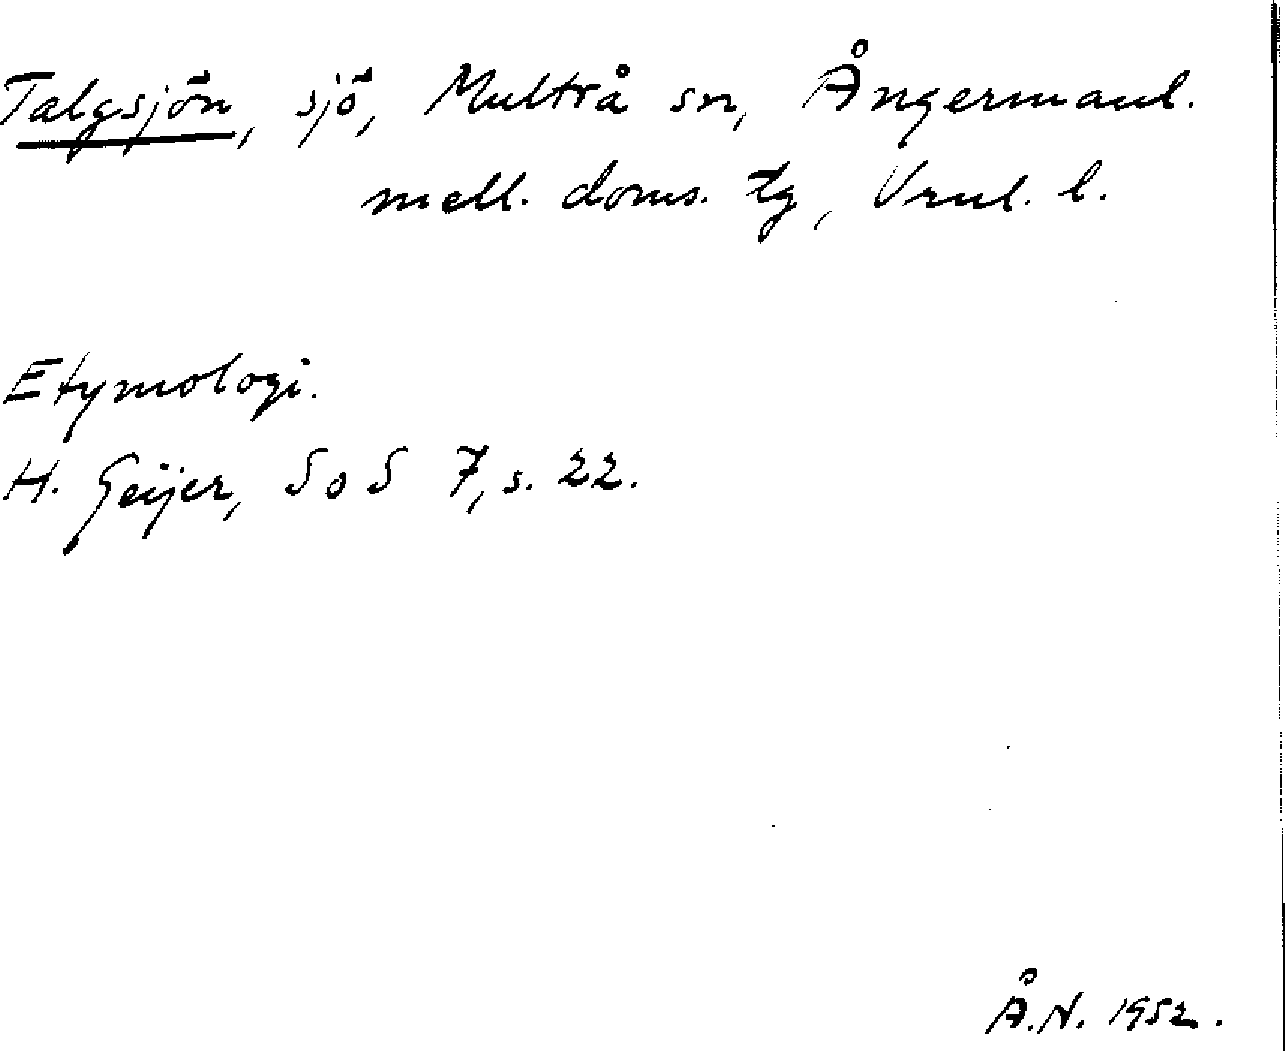 Talgsjön, sjö, Multrå sn, Ångermanl.
mell. doms. tg, Vrnl. l.
Etymologi.
H. Geijer, SoS 7, s. 22.
Å.N. 1952.